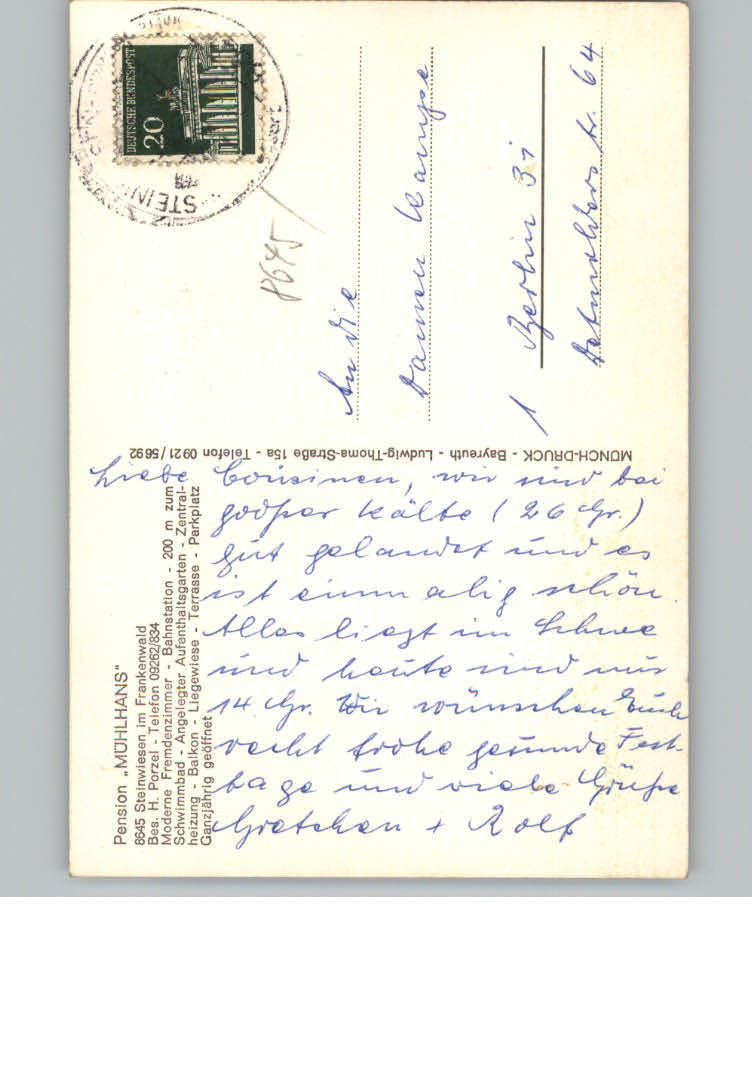 Pension „MÜHLHANS“
8645 Steinwiesen im Frankenwald
Bes. H. Porzel - Telefon 09262/834
Moderne Fremdenzimmer - Bahnstation - 200 m zum
Schwimmbad - Angelegter Aufenthaltsgarten - Zentral-
heizung - Balkon - Liegewiese - Terrasse - Parkplatz
Ganzjährig geöffnet
Liebe Cousinen, wir sind bei
großer Kälte (26 Gr.)
gut gelandet und es
ist einmalig schön.
Alles liegt im Schnee
und heute sind nur
14 Gr. Wir wünschen Euch
recht frohe gesunde Fest-
tage und viele Grüße
Gretchen + Rolf
MÜNCH-DRUCK - Bayreuth - Ludwig-Thoma-Straße 15a - Telefon 0921/5692
DEUTSCHE BUNDESPOST
20
STEIN
8645
An die
Damen Kampe
1 Berlin 31
str. 64